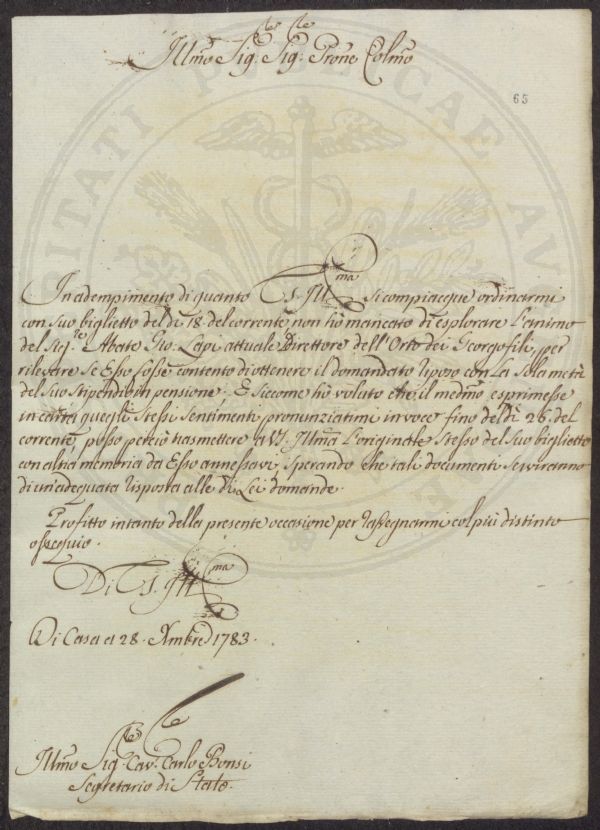 Illmo Sig.re Sig.re Prone Colmo
65
In adempimento di quanto V.S. Illma si compiacque ordinarmi
con suo biglietto del dì 18. del corrente non hò mancato di esplorare l'animo
del Sig.re Abate Gio. Lapi attuale Direttore dell'Orto dei Georgofili, per
rilevare se Esso fosse contento di ottenere il domandato riposo con la sola metà
del suo stipendio in pensione. E siccome hò voluto che il medmo esprimesse
in carta quegli stessi sentimenti pronunziatimi in voce fino del dì 26. del
corrente, posso perciò trasmettere a VS. Illma l'originale stesso del suo biglietto
con altra memoria da Esso annessavi, sperando che tali documenti serviranno
di un'adequata risposta alle di Lei domande.
Profitto intanto della presente occasione per rassegnarmi col più distinto
ossequio.
Di V.S. Illma
Di Casa a 28. Xmbre 1783.
Illmo Sig.re Cav.re Carlo Bonsi
Segretario di Stato.